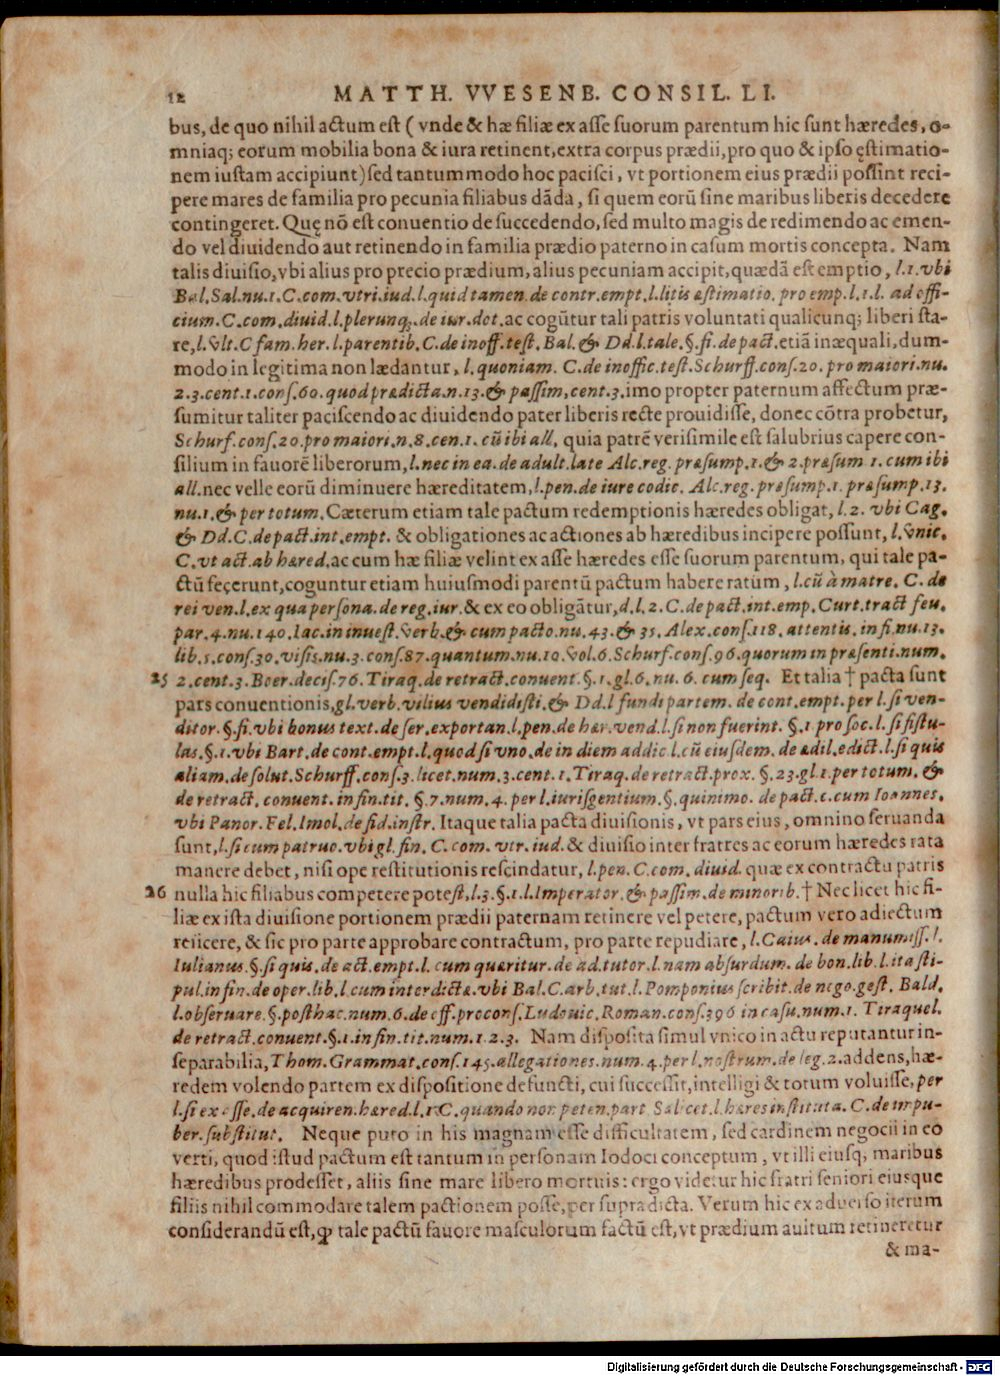 12 MATTH. VVESENB. CONSIL. LI.
bus, de quo nihil actum est ( vnde & hæ filiæ ex asse suorum parentum hic sunt hæredes, o-
mniaq; eorum mobilia bona & iura retinent, extra corpus prædii, pro quo & ipso ęstimatio-
nem iustam accipiunt) sed tantummodo hoc pacisci, vt portionem eius prædii possint reci-
pere mares de familia pro pecunia filiabus dāda, si quem eorū sine maribus liberis decedere
contingeret. Quę nō est conuentio de succedendo, sed multo magis de redimendo ac emen-
do vel diuidendo aut retinendo in familia prædio paterno in casum mortis concepta. Nam
talis diuisio, vbi alius pro precio prædium, alius pecuniam accipit, quædā est emptio, l.1. vbi
Bal. Sal. nu.1. C. com. vtri. iud. l. quid tamen. de contr. empt. l. litis æstimatio. pro emp. l.1. l. ad offi-
cium. C. com. diuid. l. plerunq;. de iur. dot. ac cogūtur tali patris voluntati qualicunq; liberi sta-
re, l. vlt. C fam. her. l. parentib. C. de inoff. test. Bal. & Dd. l. tale. §. fi. de pact. etiā inæquali, dum-
modo in legitima non lædantur, l. quoniam. C. de inoffic. test. Schurff. cons. 20. pro maiori. nu.
2.3. cent. 1. cons. 60. quod prædicta. n. 13. & passim, cent. 3. imo propter paternum affectum præ-
sumitur taliter paciscendo ac diuidendo pater liberis recte prouidisse, donec cōtra probetur,
Schurf. cons. 20. pro maiori. n. 8. cen. 1. cū ibi all, quia patrē verisimile est salubrius capere con-
silium in fauorē liberorum, l. nec in ea. de adult. late Alc. reg. præsump. 1. & 2. præsum 1. cum ibi
all. nec velle eorū diminuere hæreditatem, l. pen. de iure codic. Alc. reg. præsump. 1. præsump. 13.
nu. 1. & per totum. Cæterum etiam tale pactum redemptionis hæredes obligat, l. 2. vbi Cag.
& Dd. C. de pact. int. empt. & obligationes ac actiones ab hæredibus incipere possunt, l. vnic.
C. vt act. ab hæred. ac cum hæ filiæ velint ex asse hæredes esse suorum parentum, qui tale pa-
ctū fecerunt, coguntur etiam huiusmodi parentū pactum habere ratum, l. cū à matre. C. de
rei ven. l. ex qua persona. de reg. iur. & ex eo obligātur, d. l. 2. C. de pact. int. emp. Curt. tract feu.
par. 4. nu. 140. Iac. in inuest. verb. & cum pacto. nu. 43. & 35. Alex. cons. 118. attentis. in fi. nu. 13.
lib. 5. cons. 30. visis. nu. 3. cons. 87. quantum. nu. 10. vol. 6. Schurf. cons. 96. quorum in præsenti. num.
25 2. cent. 3. Boer. decis. 76. Tiraq. de retract. conuent. §. 1. gl. 6. nu. 6. cum seq. Et talia † pacta sunt
pars conuentionis, gl. verb. vilius vendidisti. & Dd. l fundi partem. de cont. empt. per l. si ven-
ditor. §. fi. vbi bonus text. de ser. exportan. l. pen. de hær. vend. l. si non fuerint. §. 1 pro soc. l. si fistu-
las. §. 1. vbi Bart. de cont. empt. l. quod si vno. de in diem addic l. cū eiusdem. de ædil. edict. l. si quis
aliam. de solut. Schurff. cons. 3. licet. num. 3. cent. 1. Tiraq. de retract. prox. §. 23. gl 1. per totum. &
de retract. conuent. in fin. tit. §. 7. num. 4. per l. iurisgentium. §. quinimo. de pact. c. cum Ioannes.
vbi Panor. Fel. Imol. de fid. instr. Itaque talia pacta diuisionis, vt pars eius, omnino seruanda
sunt, l. si cum patruo. vbi gl. fin. C. com. vtr. iud. & diuisio inter fratres ac eorum hæredes rata
manere debet, nisi ope restitutionis rescindatur, l. pen. C. com. diuid. quæ ex contractu patris
26 nulla hic filiabus competere potest, l. 3. §. 1. l. Imperator. & passim. de minorib. † Nec licet hic fi-
liæ ex ista diuisione portionem prædii paternam retinere vel petere, pactum vero adiectum
reiicere, & sic pro parte approbare contractum, pro parte repudiare, l. Caius. de manumiss. l.
Iulianus. §. si quis. de act. empt. l. cum quæritur. de ad. tutor. l. nam absurdum. de bon. lib. l. ita sti-
pul. in fin. de oper. lib. l. cum interdictæ. vbi Bal. C. arb. tut. l. Pomponius scribit. de nego. gest. Bald.
l. obseruare. §. post hac. num. 6. de off. procons. Ludouic. Roman. cons. 396 in casu. num. 1. Tiraquel.
de retract. conuent. §. 1. in fin. tit. num. 1. 2. 3. Nam disposita simul vnico in actu reputantur in-
separabilia, Thom. Grammat. cons. 145. allegationes. num. 4. per l. nostrum. de leg. 2. addens, hæ-
redem volendo partem ex dispositione defuncti, cui successit, intelligi & totum voluisse, per
l. si ex asse. de acquiren. hæred. l. 1. C. quando non peten. part Salicet. l. hæres instituta. C. de impu-
ber. substitut. Neque puto in his magnam esse difficultatem, sed cardinem negocii in eo
verti, quod istud pactum est tantum in personam Iodoci conceptum, vt illi eiusq; maribus
hæredibus prodesset, aliis sine mare libero mortuis: ergo videtur hic fratri seniori eiusque
filiis nihil commodare talem pactionem posse, per supradicta. Verum hic ex aduerso iterum
considerandū est, ꝙ tale pactū fauore masculorum factū est, vt prædium auitum retineretur
& ma-
Digitalisierung gefördert durch die Deutsche Forschungsgemeinschaft - DFG